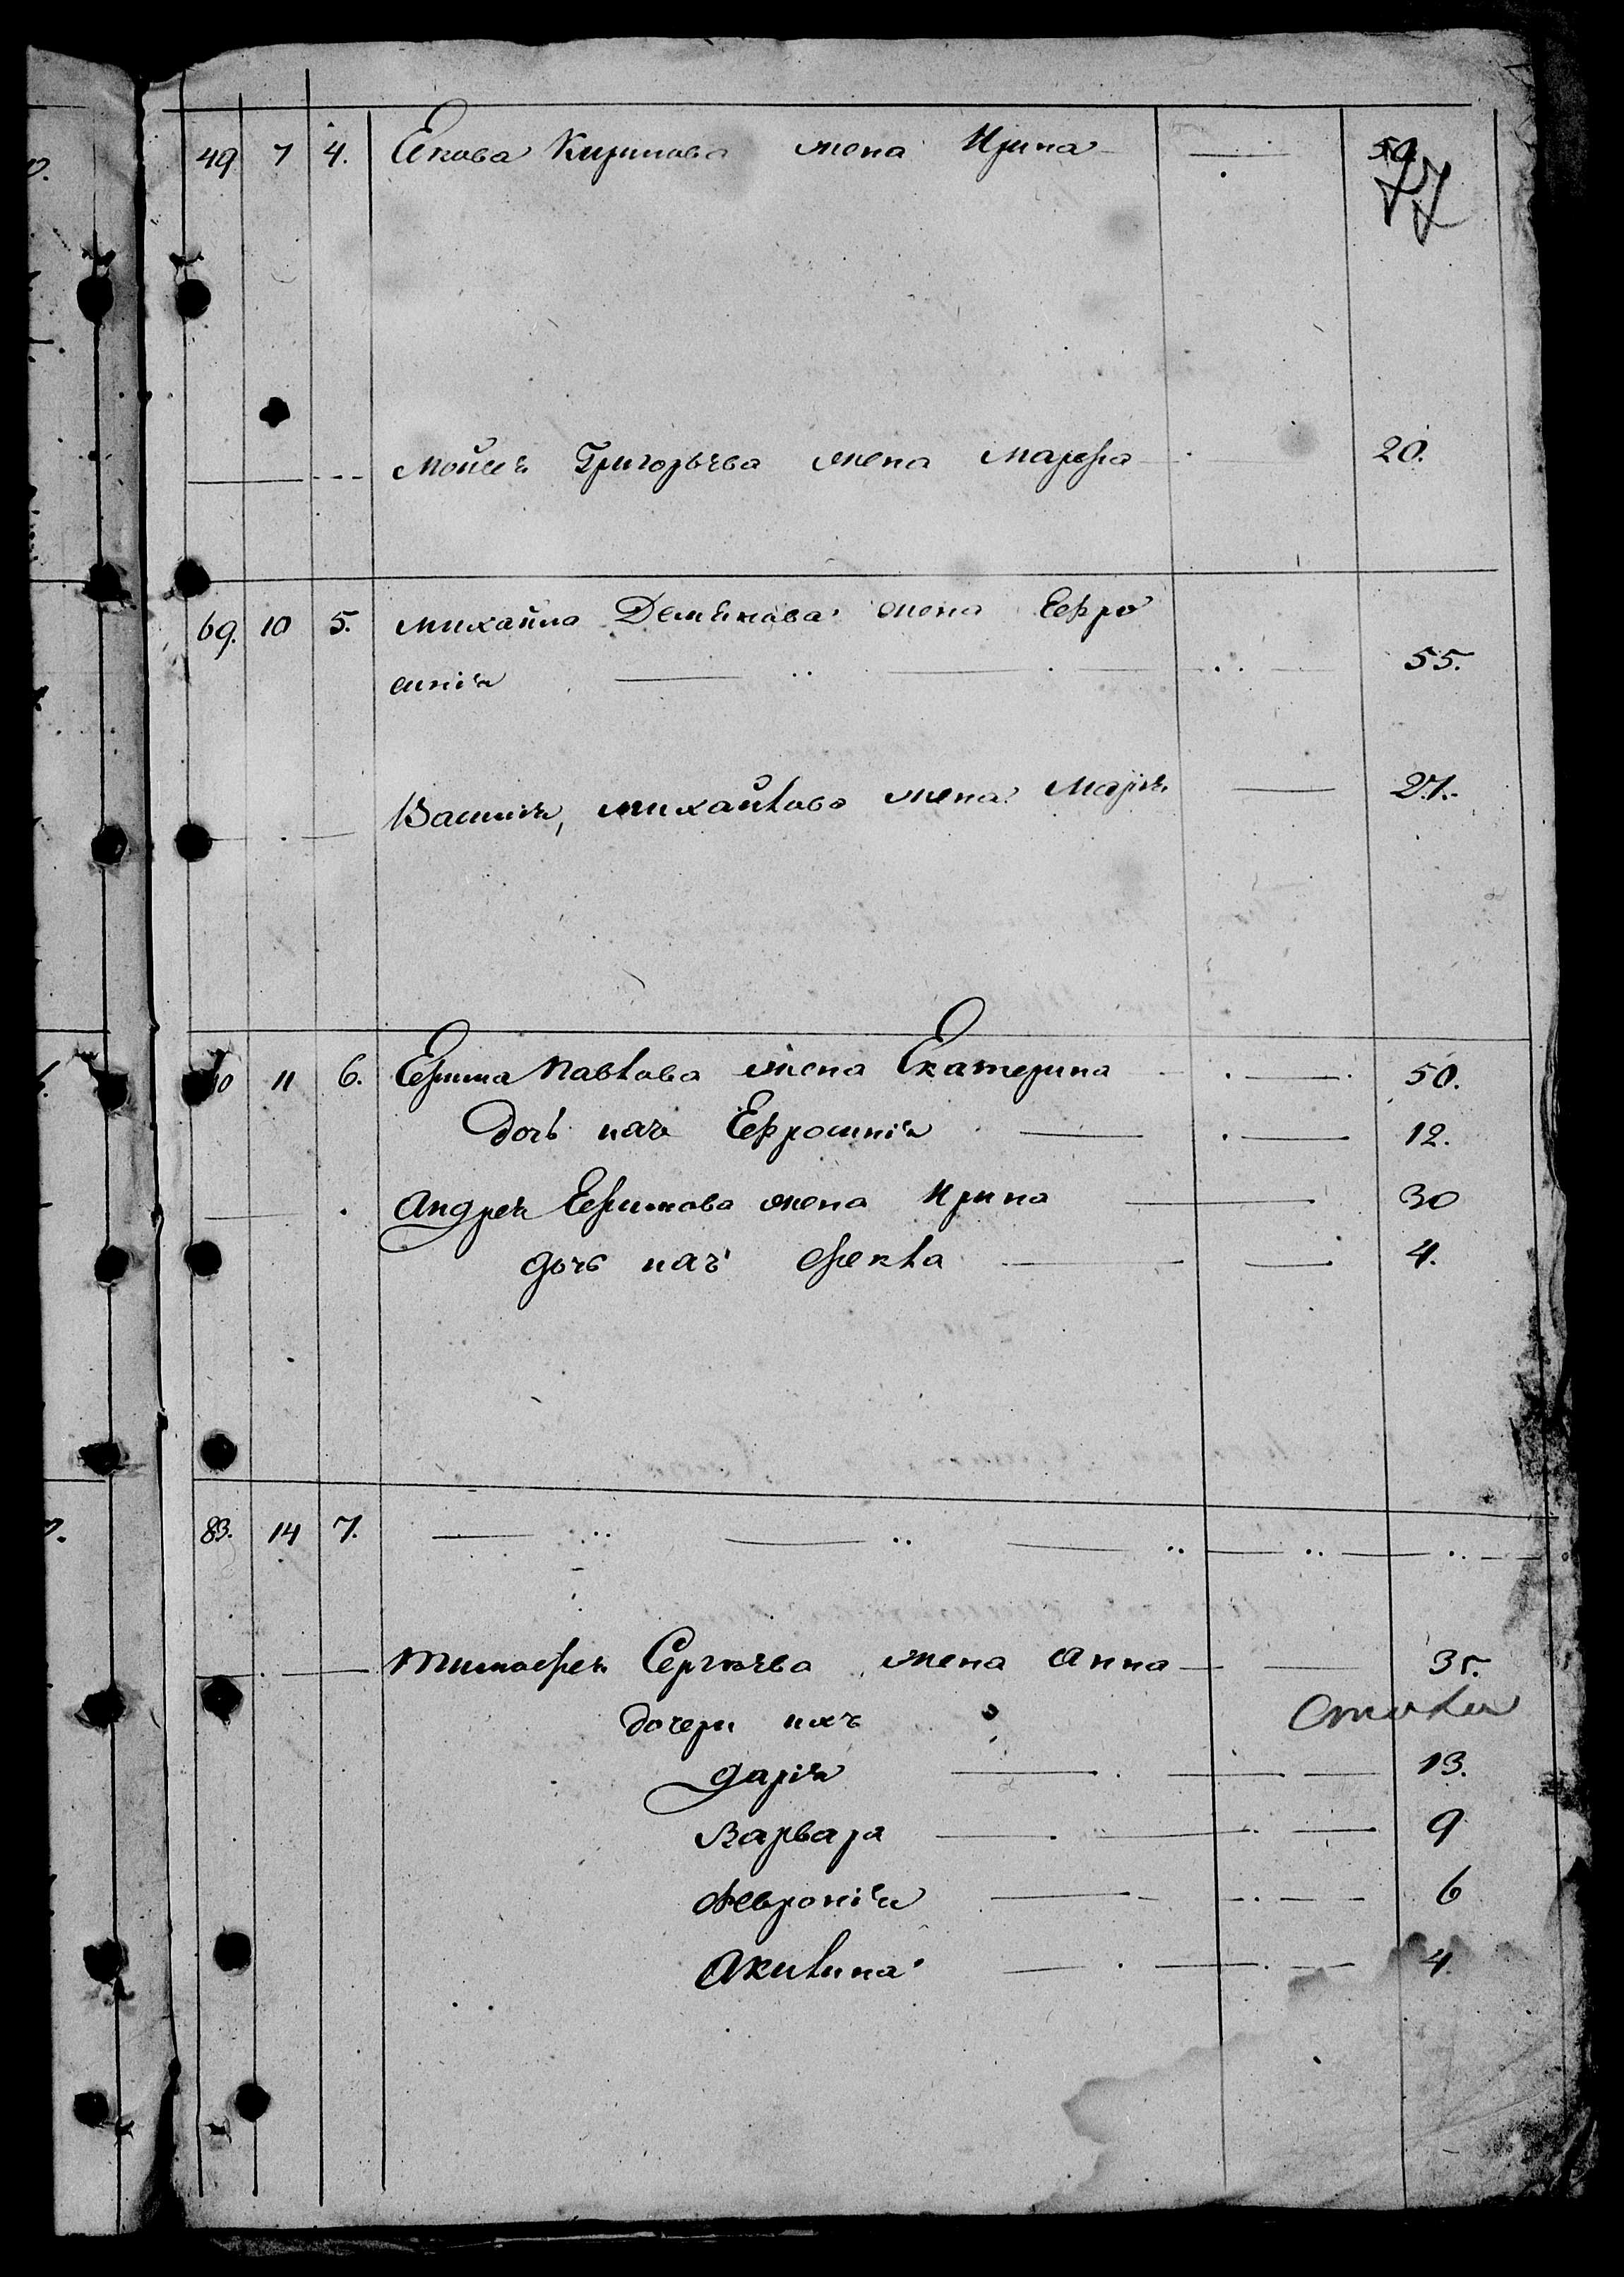 49 7 4. Екова Кирилова жена Ирина 50.
77
Мойсея Григорьева жена Марфа 20.
69. 10 5. Михайла Демьянова жена Ефро
синия 55.
Василия, Михайлова жена Мария 27.
11 6. Ефима Павлова жена Екатерина 50.
дочь ихъ Ефросиния 12.
Андрея Ефимова жена Ирина 30
дочь ихъ Фекла 4.
83. 14 7.
Тимофея Сергеева жена Анна 35.
дочери ихъ
Дарія 13.
Варвара 9
Февронія 6
Акилина 4.